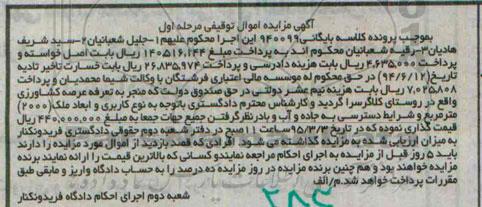 آگهی مزایده اموال توقیفی مرحله اول
بموجب پرونده کلاسه بایگانی ۹۴۰۰۹۹ این اجرا محکوم علیهم ۱-جلیل شعبانیان ۲-سید شریف
هادیان ۳-رقیه شعبانیان محکوم اند به پرداخت مبلغ ۱۴۰۵۱۶.۱۴۴ ریال بابت اصل خواسته و
۴.۶۳۵.۰۰۰ ریال بابت هزینه دادرسی و پرداخت ۲۶.۸۳۵.۹۷۴ ریال بابت خسارت تاخیر تادیه
تاریخ (۹۴/۶/۱۲) در حق محکوم له موسسه مالی اعتباری فرشتگان با وکالت شیما محمدیان و پرداخت
۷.۰۲۵.۸۰۸ ریال بابت هزینه نیم عشر دولتی در حق صندوق دولت که منجر به تعرفه عرصه کشاورزی
واقع در روستای کلاگرسرا گردید و کارشناس محترم دادگستری باتوجه به نوع کاربری و ابعاد ملک (۲۰۰۰)
مترمربع و شرایط دسترسی به جاده و آب و بادرنظرگرفتن جمیع جهات جمعا به مبلغ ۴۴۰.۰۰۰.۰۰۰ ریال
قیمت گذاری نموده که در تاریخ ۹۵/۳/۳ ساعت ۱۱ صبح در دفتر شعبه دوم حقوقی دادگستری فریدونکنار
به میزان ارزیابی شده به مزایده گذاشته می شود. افرادی که قصد بازدید از اموال مورد مزایده را دارند
باید ۵ روز قبل از مزایده به اجرای احکام مراجعه نمایند و کسانی که بالاترین قیمت را ارائه نمایند برنده
مزایده خواهند بود و هم چنین برنده مزایده در روز مزایده ده درصد را به حساب دادگاه واریز و مابقی طبق
مقررات پرداخت خواهد شد.م/الف
شعبه دوم اجرای احکام دادگاه فریدونکنار